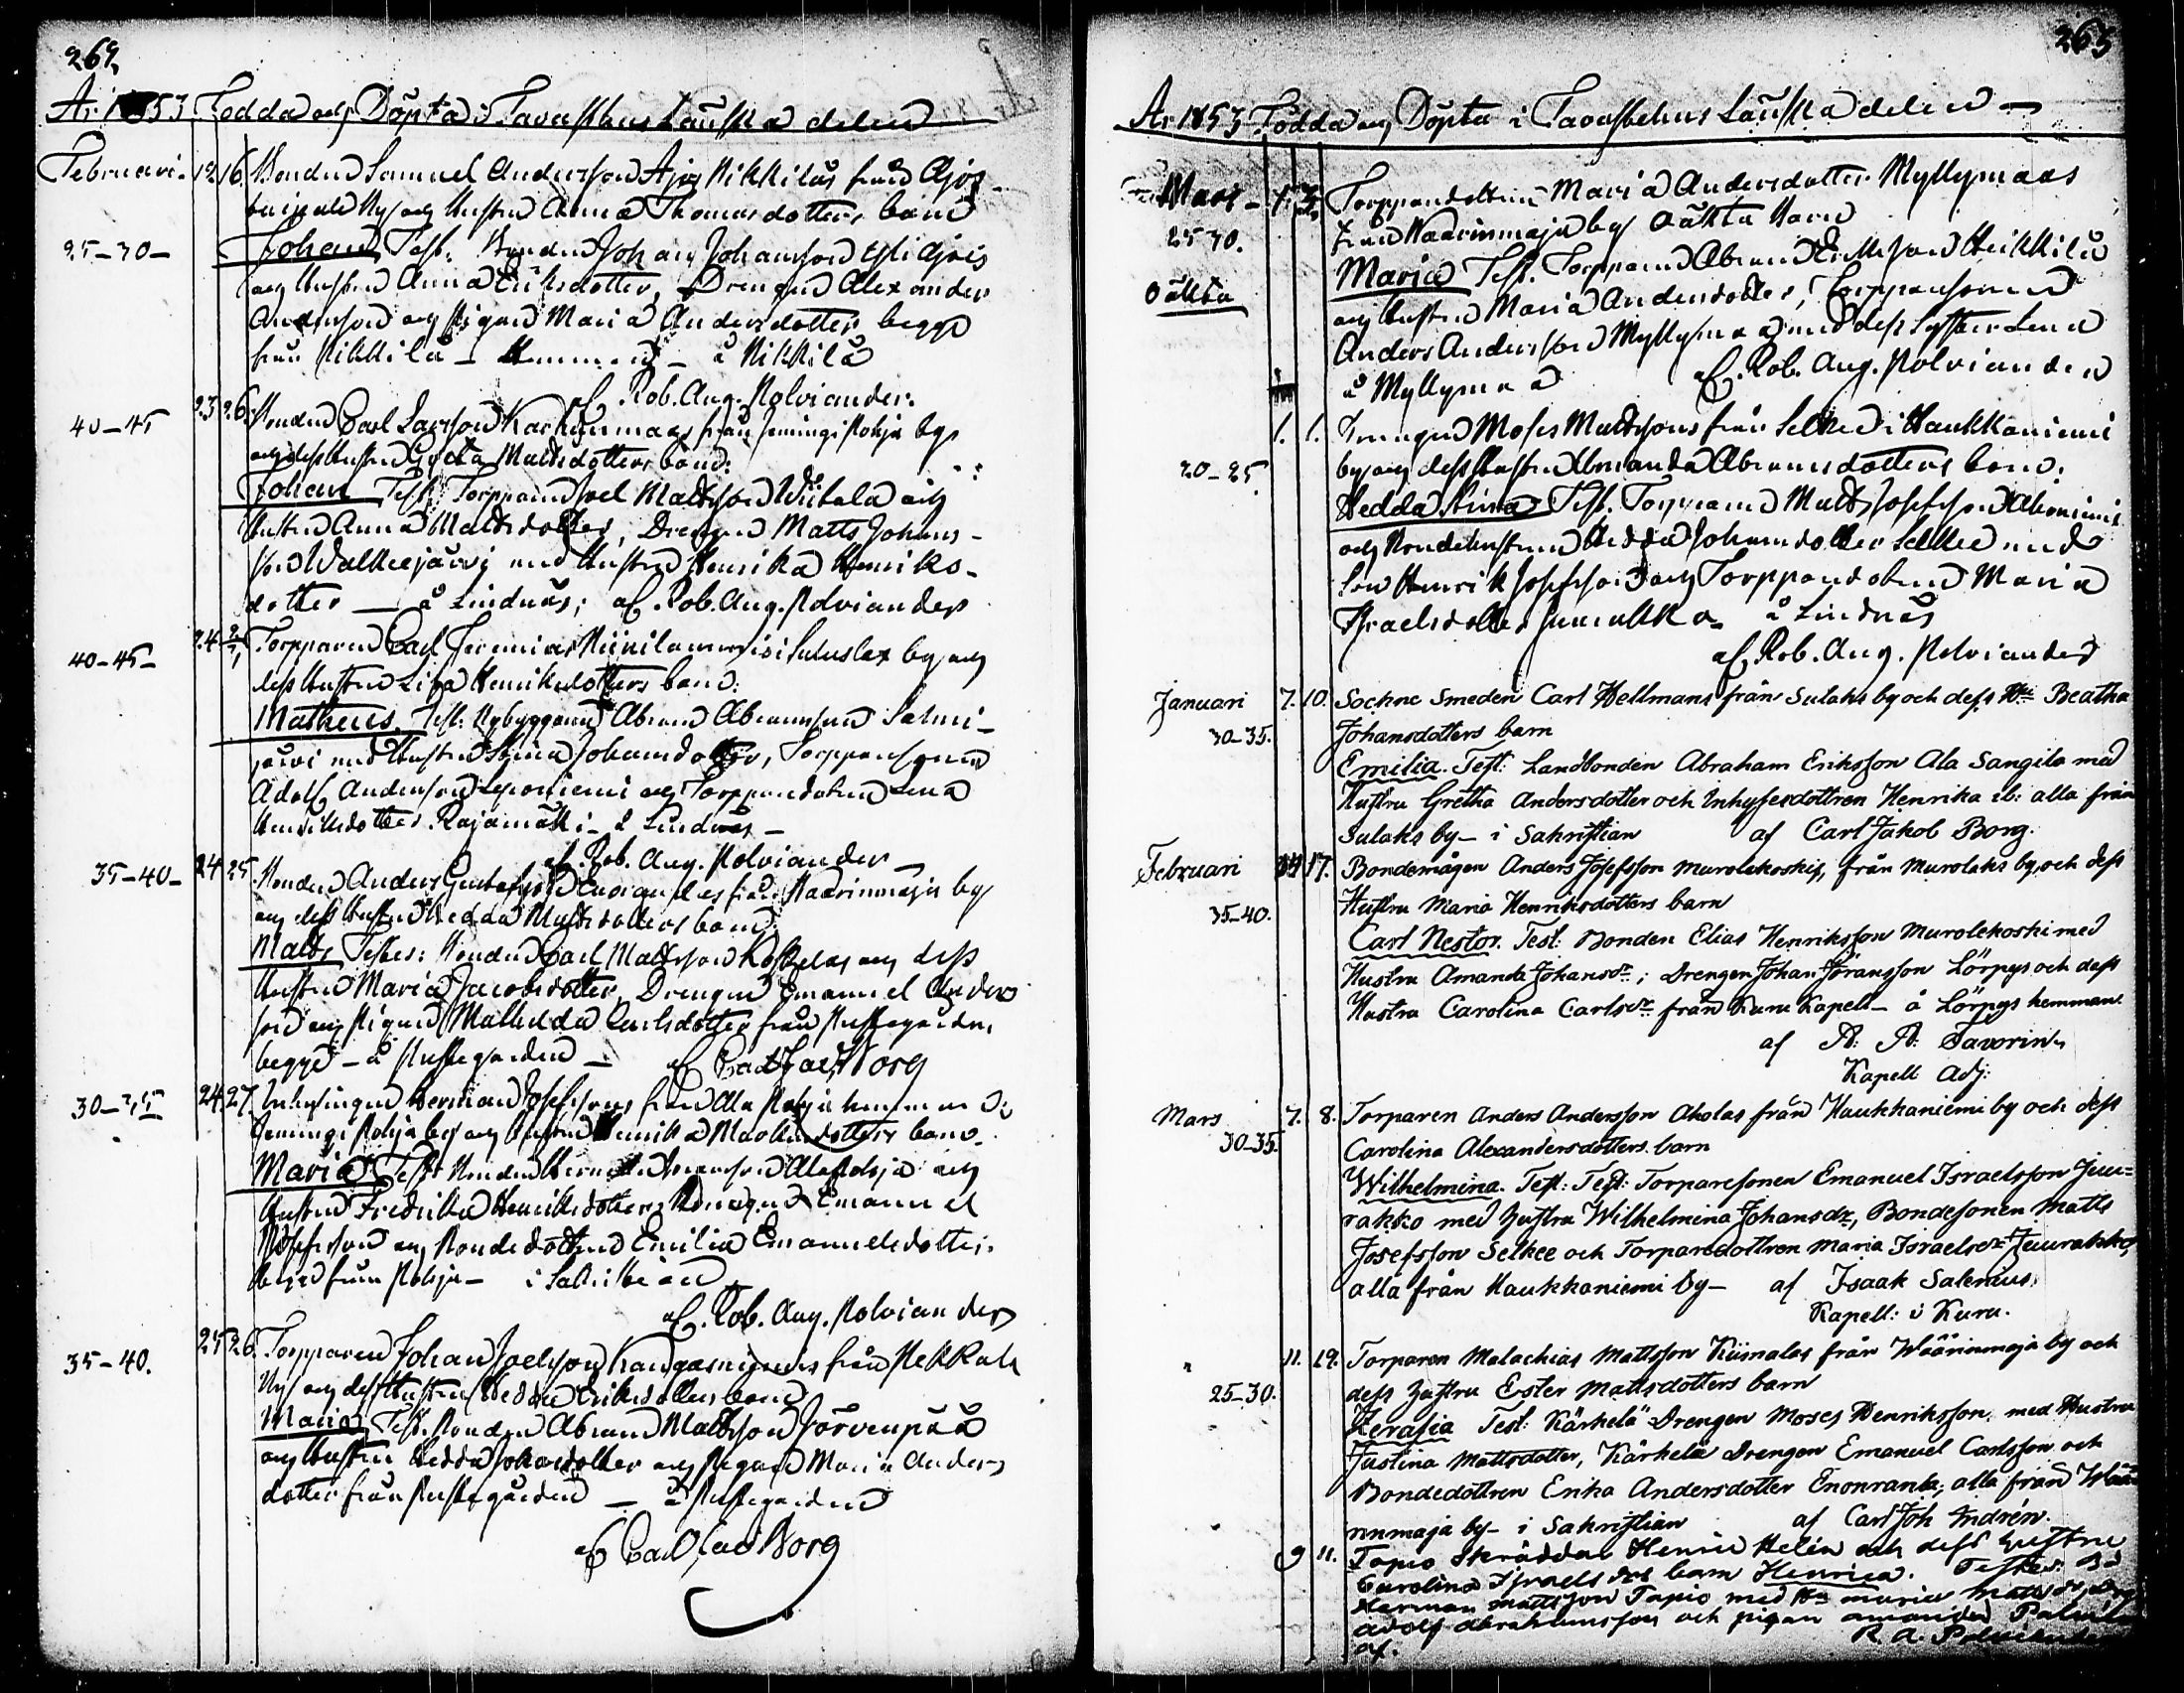 262,
År 1853 Födda och Döpta i Tavastehus Länska delen
Februari. 12. 16. Bonden Samuel Andersson Äijös Mikkiläs från Äijös
by och Hustrun Anna Thomasdotters barn
25-30- Johan, Test. Bonden Johan Johansson Äijös
och Hustrun Anna Eriksdotter, Drengen Alexander
Andersson och pigan Maria Andersdotter begge
från Mikkilä - Hemman - å Mikkilä
af Rob. Aug. Polviander.
40-45 23. 26. Bonden Carl Larsson från Jeminginpohja by
och dess Hustru Greta Mattsdotters barn:
Johan Test: Torpparen Joel Mattsson Wiitala och
Hustrun Anna Mattsdotter, Drengen Matts Johans-
son Walkeejärvi med Hustrun Henrika Henriks-
dotter - å Lindnäs; af Rob. Aug. Polviander
40-45- 24 2/1 Torpparen Carl Jeremias Niinilammis i by och
dess Hustru Lisa Henriksdotters barn:
Matheus. Test: Nybyggaren Abram Abramsson Salmi-
järvi med Hustrun Johansdotter, Torpparesonen
Adolf Andersson Leponiemi och Torpparedotren Lena
Henriksdotter Rajamäki - å Lindnäs -
af Rob. Aug. Polviander
35-40- 24 25 Bonden Anders Gustafsson från Waarinmaja by
och dess Hustru Hedda Mattsdotters barn:
Matts, Testes: Bonden Carl Mattsson Koskelas och dess
Hustru Maria Jacobsdotter, Drengen Emanuel Anders
son och Pigan Mathilda Carlsdotter från Prestegården
begge - å Prestegården - af Carl Jac. Borg
30-35 24. 27. Inhysingen Herman Josefssons från Ala Pohja hemman i
Jeminginpohja by och Hustrun Henrika barn.
Maria Test Bonden Herman Ala Pohja och
Hustrun Fredrika Henriksdotter, Drengen Emanuel
Josefsson och Bondedottren Emilia Emanuelsdotter.
begge från Pohja - i Sakristian
af. Rob. Aug. Polviander
35-40. 25 26. Torpparen Johan Joelsson Kangasniemis från Pekkala
by och dess Hustru Hedda Eriksdotters barn
Maria, Test. Bonden Abram Mattsson Jervenpää
och Hustrun Hedda Johansdotter och Pigan Maria Anders
dotter från Prestegården - å Prestegården
af Carl Jac Borg
263
År 1853 Födda och Döpta i Tavastehus Länska delen -
Mars - 1. Torpparedottren Maria Andersdotter Myllymaas
25 30. från Waarinmaja by Oäkta barn
Maria Test. Torpparen Abram Heikkilä
Oäkta och Hustrun Maria Andersdotter, Torpparesonen
Anders Andersson Myllymaa med dess Syster Lena
å Myllymaa af. Rob. Aug. Polviander
1. 1. Drengen Moses Mattssons från Selkee i Haukkaniemi
20-25 by och dess Hustru Amanda Abramsdotters barn.
Hedda Stina Test. Torpparen Matts Josefsson
och Bondehustrun Hedda Johansdotter Selkee med
Son Henrik Josefsson och Torpparedotren Maria
Israelsdotter Juurakko å Lindnäs
af. Rob. Aug. Polviander
Januari 7. 10. Sockne Smeden Carl Hellmans från Sulaks by och dess Hu Beatha
30-35. Johansdotters barn
Emilia. Test: Landbonden Abraham Eriksson Ala Sangila med
Hustru Gretha Andersdotter och Inhysesdottren Henrika ib: alla från
Sulaks by - i Sakristian af Carl Jakob Borg.
Februari 14 17. Bondemågen Anders Josefsson Murolekoskis, från Murolaks by och dess
35-40. Hustru Maria Henriksdotters barn
Carl Nestor. Test: Bonden Elias Henriksson Murolekoski med
Hustru Amanda Johansdr; Drengen Johan Jöransson Lörpys och dess
Hustru Carolina Carlsdr från Kuru Kapell - å Lörpys hemman
af A: A: Favorin
Kapell Adj:
Mars 7. 8. Torparen Anders Andersson Aholas från Haukkaniemi by och dess
30-35. Carolina Alexandersdotters barn
Wilhelmina. Test: Test: Torparesonen Emanuel Israelsson Juu-
rakko med Hustru Wilhelmina Johansdr, Bondesonen Matts
Josefsson Selkee och Torparedottren Maria Israelsdr Juurakko,
alla från Haukkaniemi by - af Isaak Salenius,
Kapell: i Kuru.
" 11. 19. Torparen Malachias Mattsson Kiimalas från Wäärinmaja by och
25-30. dess Hustru Ester Mattsdotters barn
Serafia Test: Kärkelä Drengen Moses Henriksson med Hustru
Justina Mattsdotter, Kärkelä Drengen Emanuel Carlsson och
Bondedottren Erika Andersdotter Enonranta; alla från Wää
rinmaja by - i Sakristian af Carl Joh Indrén.
9 11. Tapio Skräddar Henric Helén och dess Hustru
Carolina Israels drs barn Henrica. Testes: Bd
Herman Mattsson Tapio med Hu Maria Mattsdr, Dr
Adolf Abrahamsson och pigan Amanda
af. R. A. Polviander